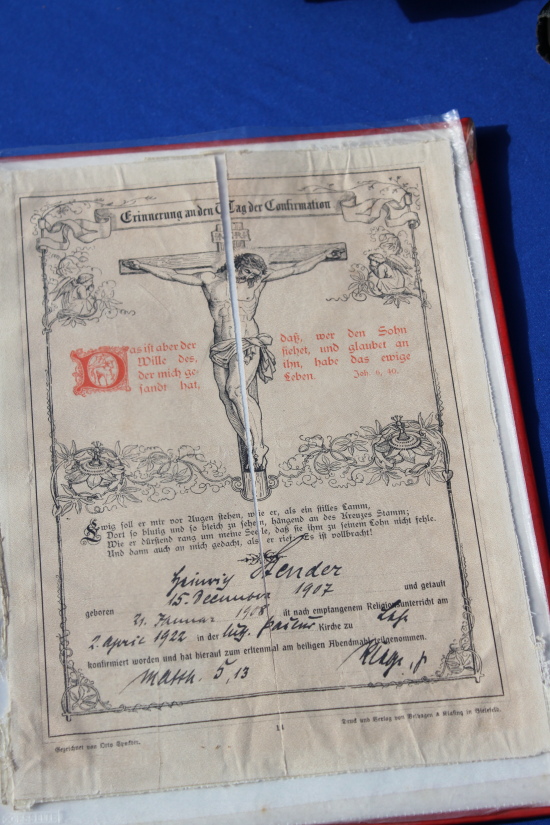 Erinnerung an den Tag der Confirmation
Das ist aber der
Wille des,
der mich ge-
sandt hat,
daß, wer den Sohn
siehet, und glaubet an
ihn, habe das ewige
Leben. Joh. 6, 40.
Ewig soll er mir vor Augen stehen, wie er, als ein stilles Lamm,
Dort so blutig und so bleich zu sehen, hängend an des Kreuzes Stamm;
Wie er dürstend rang um meine Seele, daß sie ihm zu seinem Lohn nicht fehle.
Und dann auch an mich gedacht, als er rief: Es ist vollbracht!
Heinrich Stender
geboren 15. Dezember 1907 und getauft
21. Januar 1908 ist nach empfangenem Religionsunterricht am
2. April 1922 in der Kirche zu
konfirmiert worden und hat hierauf zu erstenmal am heiligen Abendmahl teilgenommen.
Matth. 5, 13
14
Gezeichnet von Otto
Druck und Verlag von Velhagen & Klasing in Bielefeld.